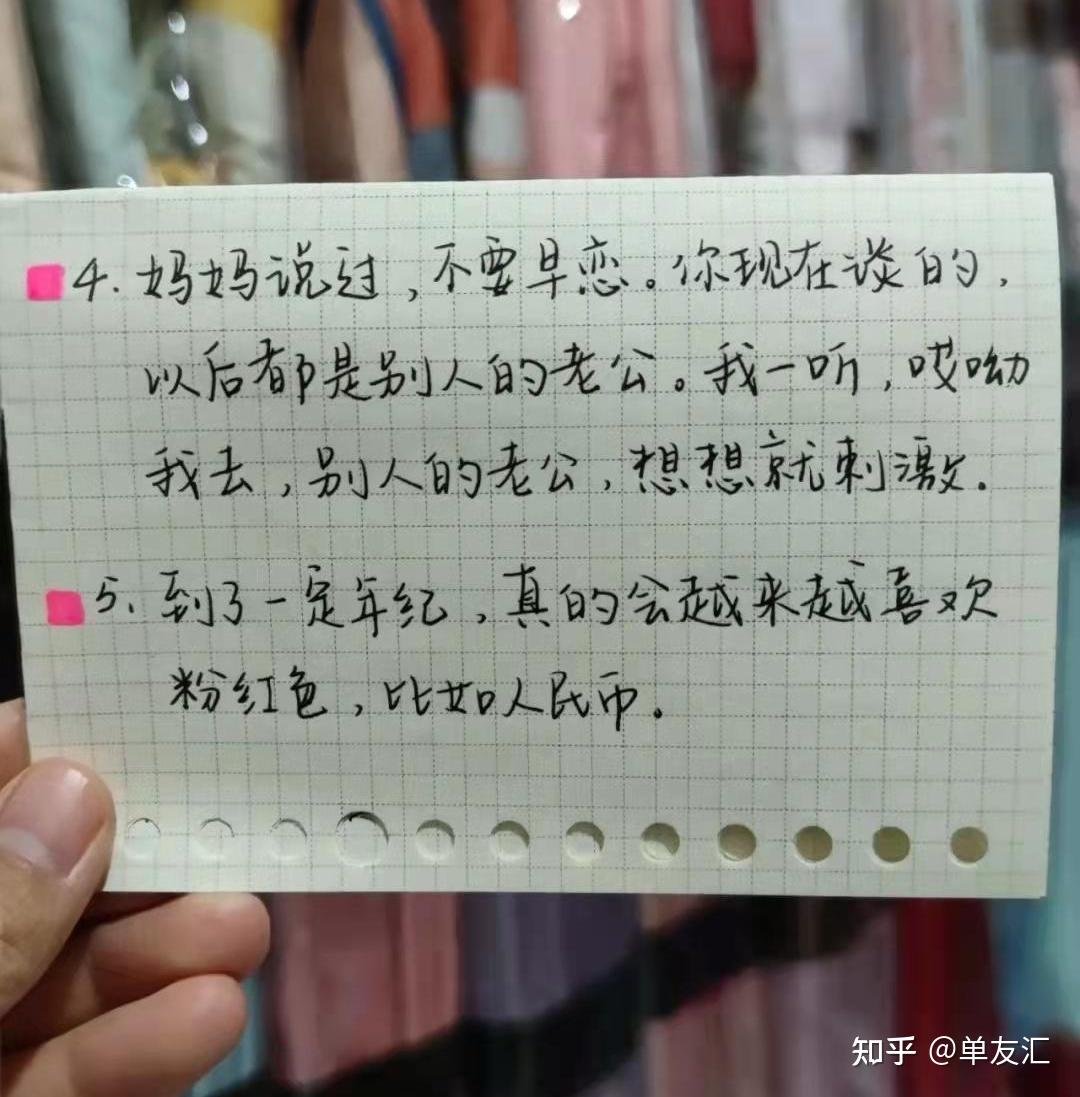 4. 妈妈说过，不要早恋。你现在谈的，
以后都是别人的老公。我一听，哎呦
我去，别人的老公，想想就刺激.
5. 到了一定年纪，真的会越来越喜欢
粉红色，比如人民币.
知乎 @单友汇